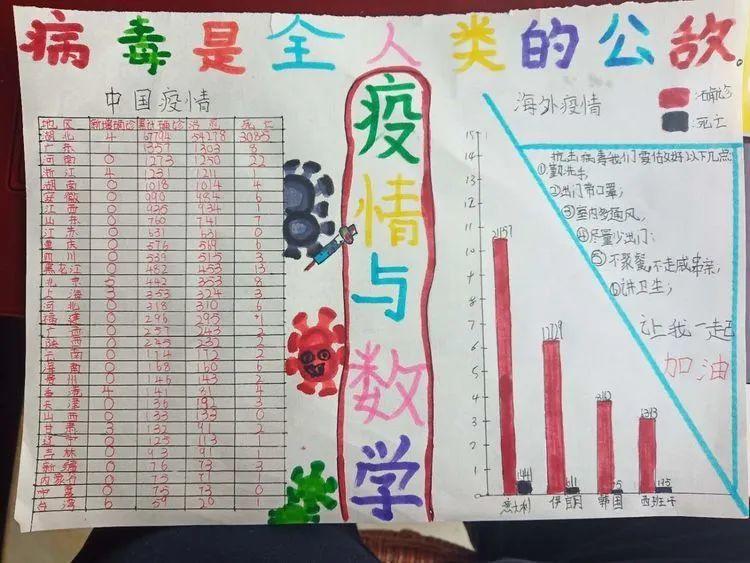 病毒是全人类的公敌。
疫情与数学
中国疫情
地区 新增确诊 累计确诊 治愈 死亡
湖北 4 67794 54278 3085
广东 1 1357 1303 8
河南 0 1273 1250 22
浙江 4 1231 1211 1
湖南 0 1018 1014 4
安徽 0 990 984 6
江西 0 935 934 1
山东 0 760 741 7
江苏 0 631 631 0
重庆 0 576 569 6
四川 0 539 515 3
黑龙江 0 482 453 13
北京 5 442 353 8
上海 3 353 324 3
河北 0 318 310 6
福建 0 296 295 1
广西 0 252 243 2
陕西 0 245 232 2
云南 0 174 172 2
海南 0 168 160 6
贵州 0 146 143 2
香港 4 141 81 4
天津 0 136 192 3
山西 0 133 133 0
甘肃 3 132 91 2
辽宁 0 125 113 1
吉林 0 93 91 1
新疆 0 76 73 3
内蒙古 0 75 71 1
宁夏 0 75 73 0
台湾 6 59 20 1
海外疫情
确诊
死亡
15
14
13
12
11
10
9
8
7
6
5
4
3
2
1
0
21157
1441
意大利
12729
611
伊朗
韩国
西班牙
抗击病毒我们要做好以下几点
①勤洗手，
②出门带口罩；
③室内多通风，
④尽量少出门；
⑤不聚餐，不走戚串亲，
⑥讲卫生；
让我一起
加油